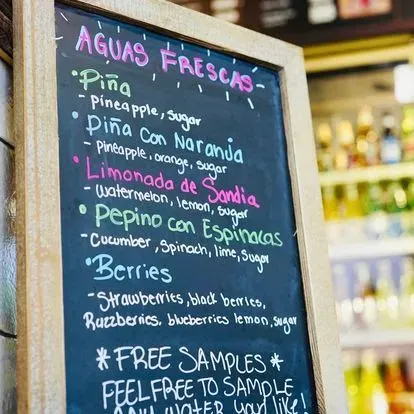 AGUAS FRESCAS
• Piña
- pineapple, sugar
• Piña con Naranja
- Pineapple, orange, sugar
• Limonada de Sandia
- watermelon, lemon, sugar
• Pepino con Espinacas
- Cucumber, spinach, lime, sugar
• Berries
- Strawberries, black berries,
Razzberries, blueberries lemon, sugar
* FREE SAMPLES *
FEEL FREE TO SAMPLE
ANY WATER YOU LIKE!